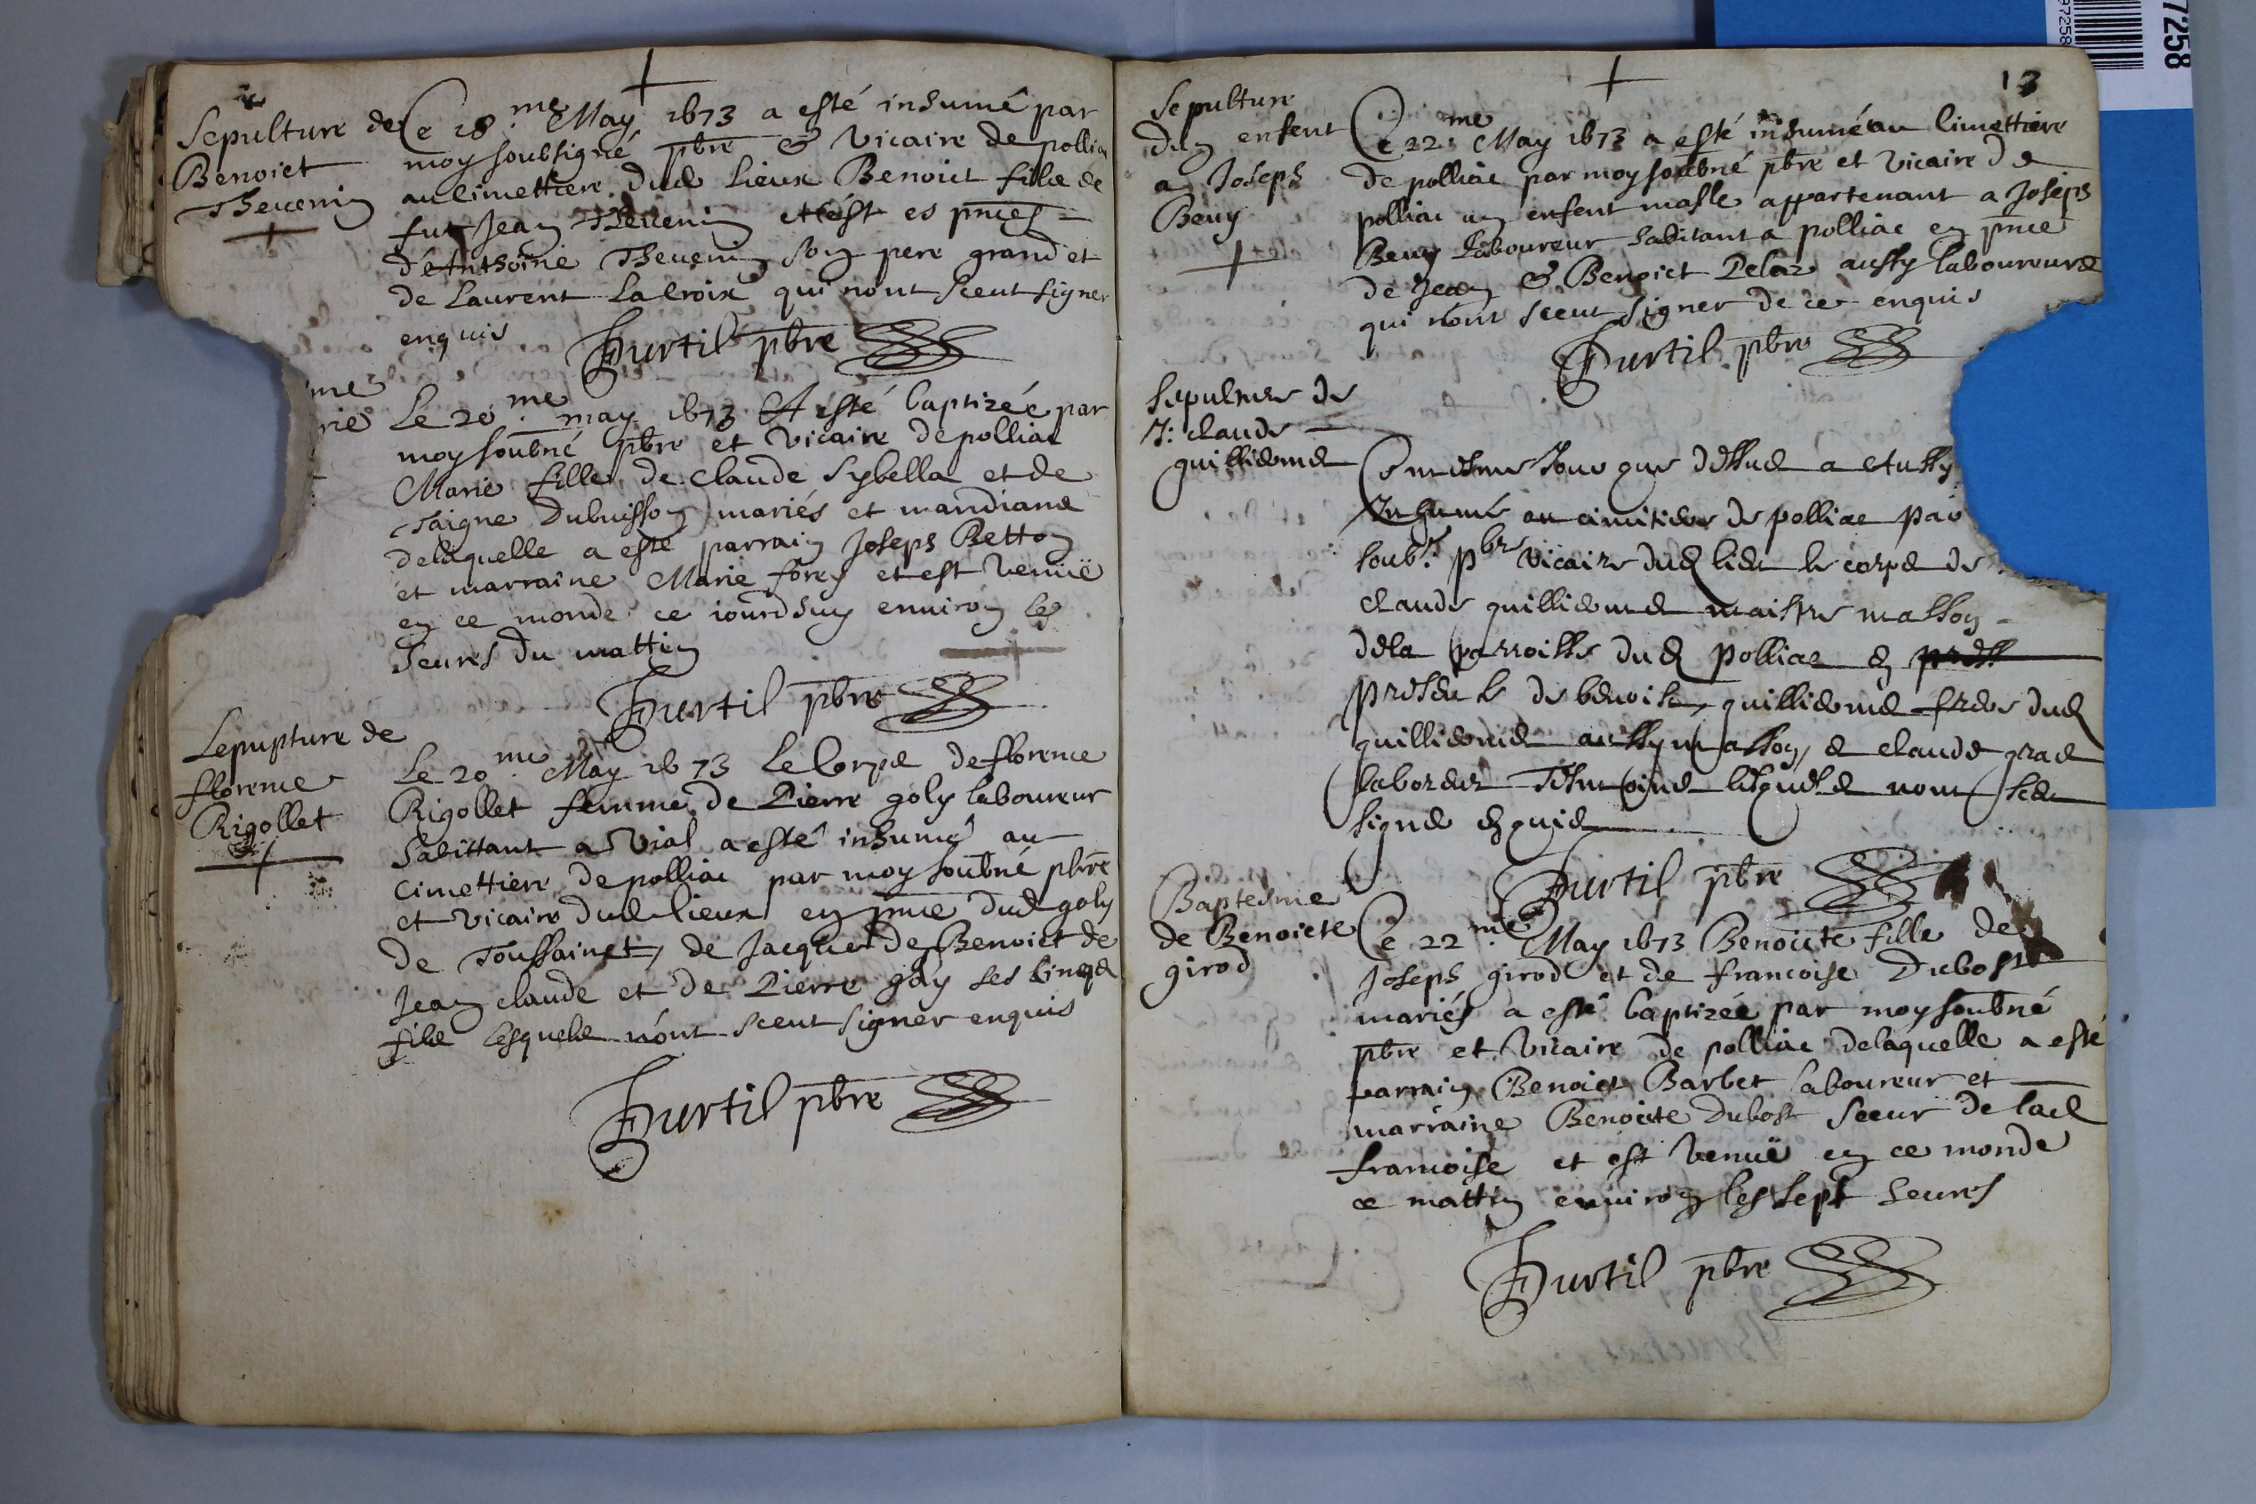 Sepulture de
Benoict
Thevenin
Ce 18.me May 1673 a esté inhumé par
moy soubsigné pbre & Vicaire de pollia
au cimettiere dud lieux Benoict filz de
fut Jean Thevenin et c'est es pnces
de Anthoine Thevenin son pere grand et
de Laurent Lacroix qui n'ont sceut signer
enquis
Hurtil pbre
me
rie
Le 20.me may 1673 A esté baptizée par
moy soubné pbre et vicaire de polliac
Marie fille de Claude Sybella et de
Taigne Dubuisson mariés et mandians
de laquelle a esté parrain Joseph Retton
et marraine Marie forey et est venuë
en ce monde ce iourdhuy environ les
heures du mattin
Hurtil pbre
Sepupture de
florence
Rigollet
Le 20.me May 1673 Le Corps de florence
Rigollet femme de Pierre goly laboureur
habittant a Vial a esté inhumé au
cimettiere de polliac par moy soubné pbre
et vicaire dud lieux en pnce dud goly
de Toussainct, de Jacques de Benoict de
Jean claude et de Pierre goy ses cinqz
filz lesquelz n'ont sceut signer enquis
Hurtil pbre
13
Sepulture
dun enfent
a Joseph
Beuy
Ce 22.me May 1673 a esté inhumé au Cimettiere
de polliac par moy soubné pbre et vicaire de
polliac un enfent masle appartenant a Joseph
Beuy Laboureur habitant a polliac en pnce
de Jean & Benoict Pelaz aussy laboureurs
qui n'ont sceut signer de ce enquis
Hurtil pbre
Sepulture de
J: claude
guillieme
Ce mesme Jour que dessus a etussy
Inhumé au cimitiere de polliac par
soub.é pbre vicaire dud lieu le corps de
claude guillioume maistre masson
de la parroisse dud polliac en
presence de benoist guillieme frere dud
guillieme aussy masson, & claude grae
laboreur Tesmoins lesquels nont sceu
signe enquis
Hurtil pbre
Baptesme
de Benoicte
girod
Ce 22.me May 1673 Benoicte fille de
Joseph girod et de francoise Dubost
mariés a esté baptizée par moy soubné
pbre et Vicaire de polliac de laquelle a esté
parrain Benoict Barbet laboureur et
marraine Benoicte Dubost soeur de lad
francoise et est venuë en ce monde
ce mattin environ les sept heures
Hurtil pbre
7258
97258